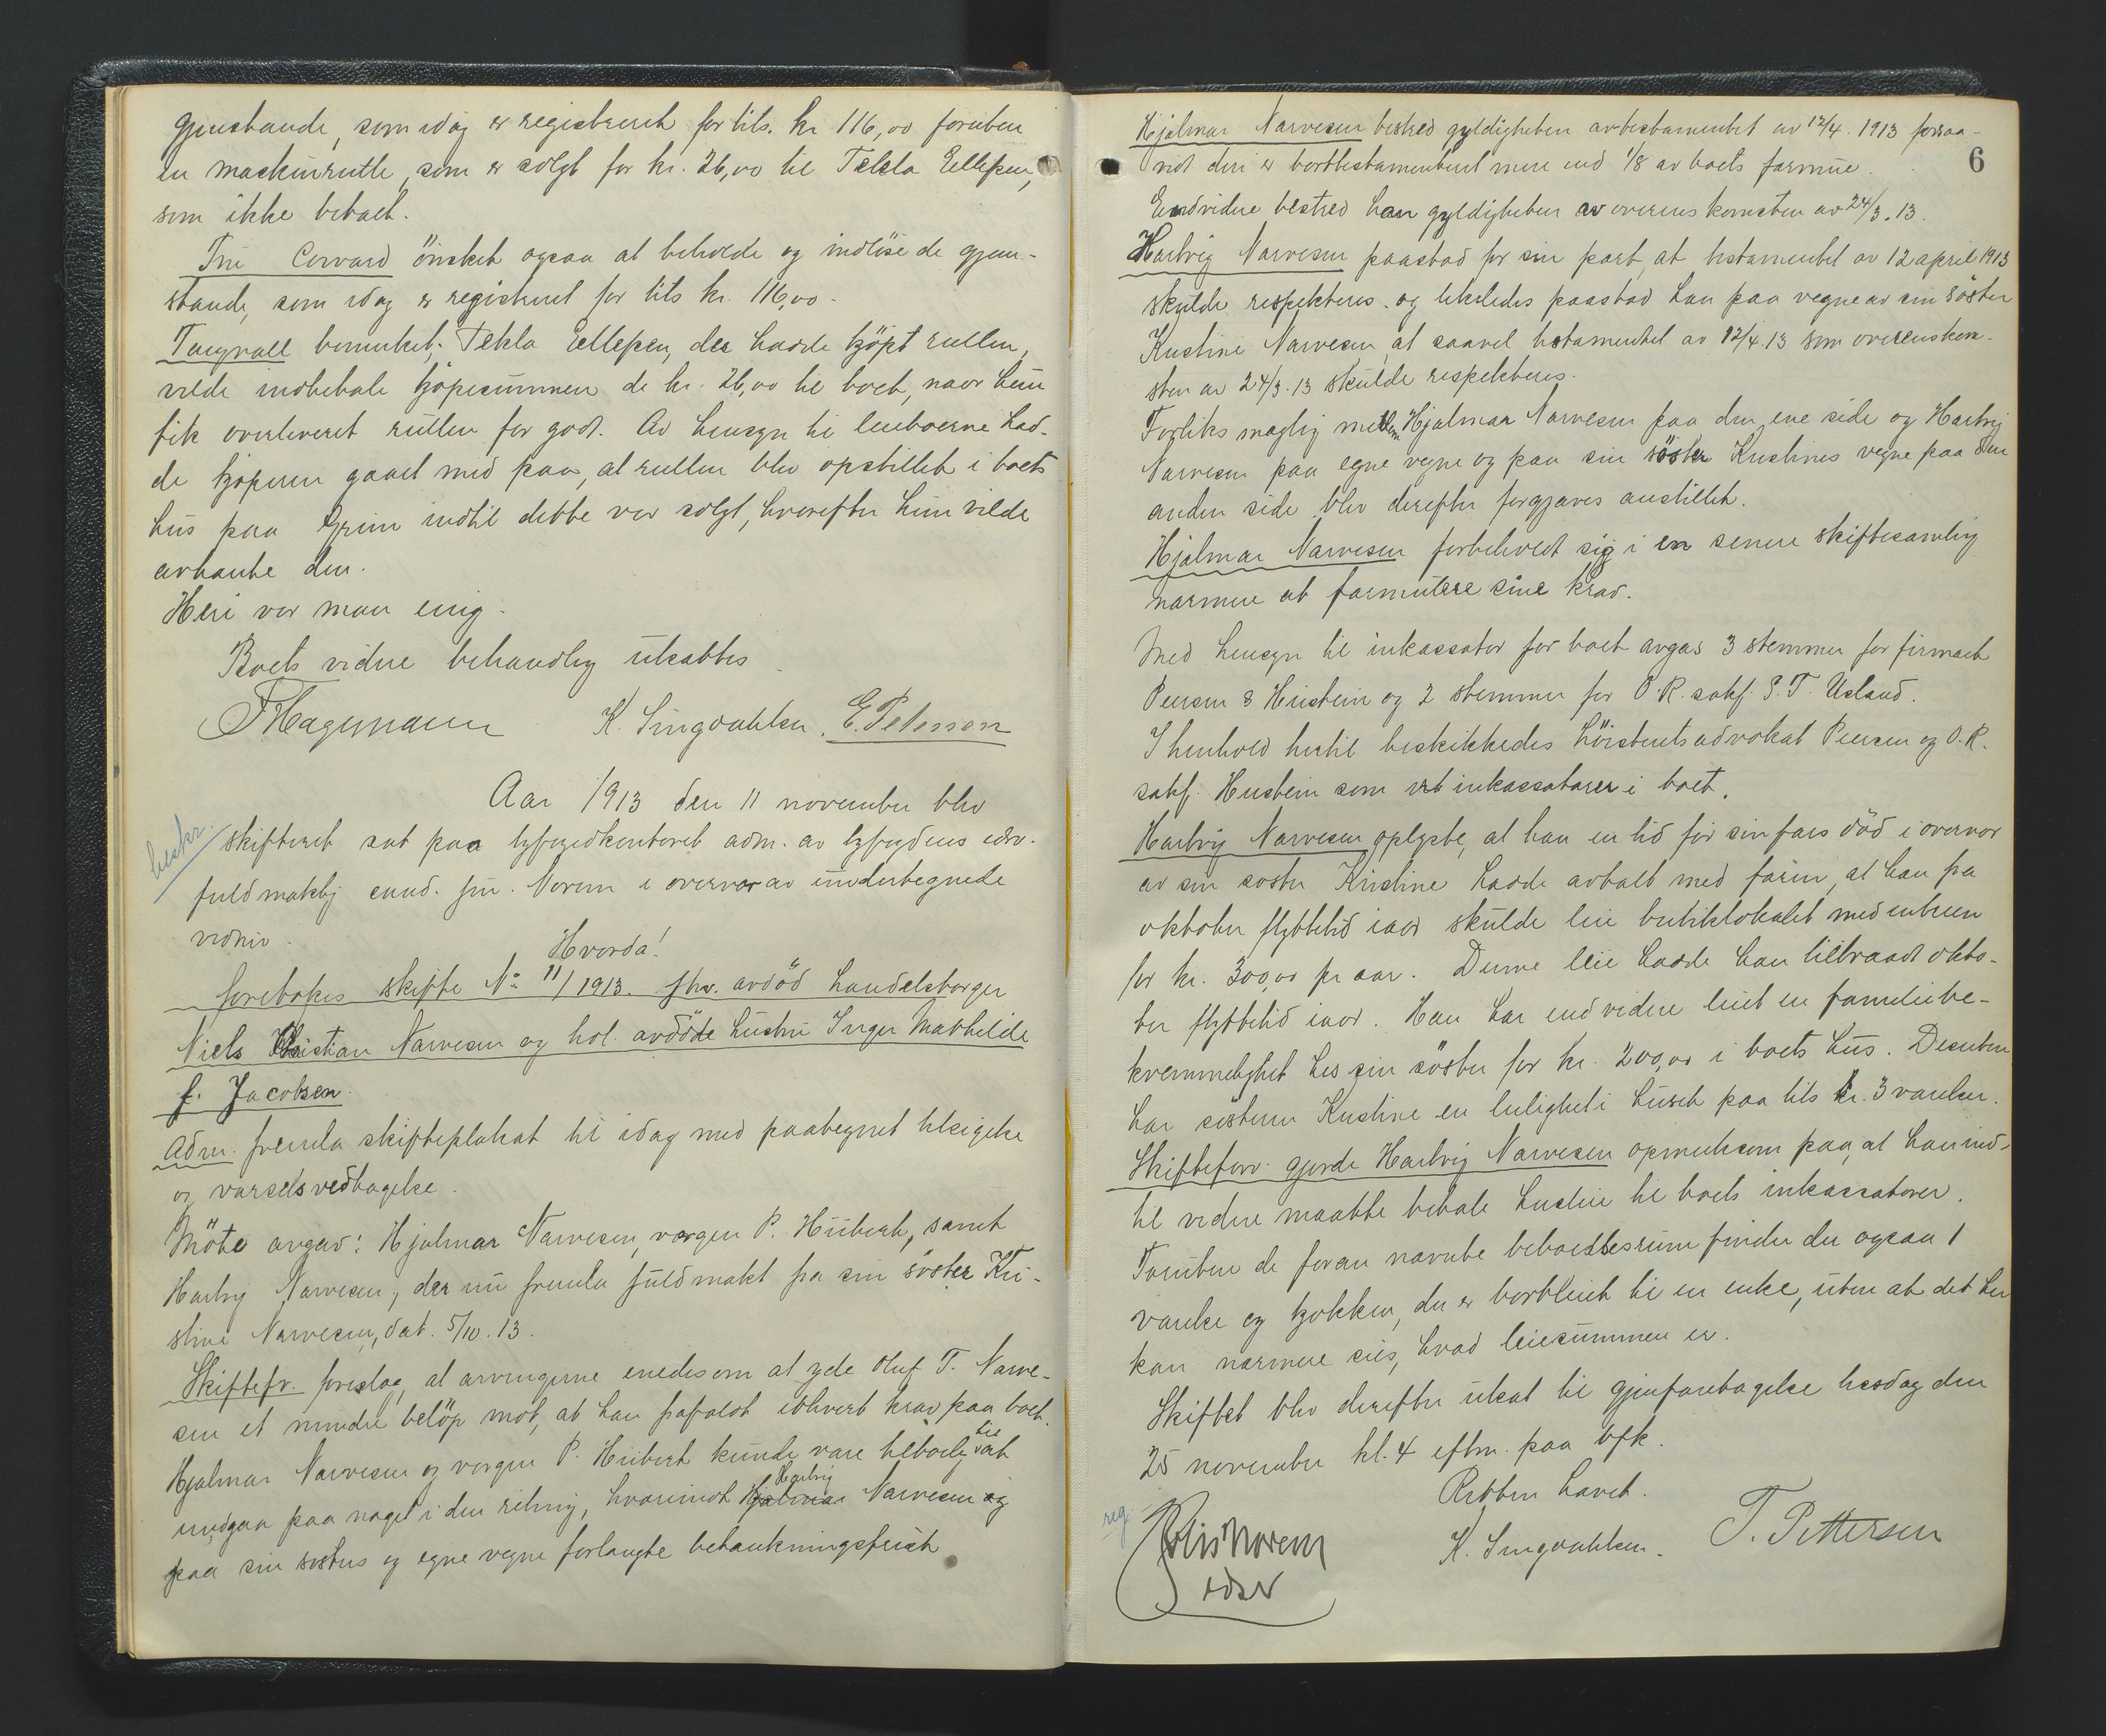 gjenstande, som idag er registreret for tils. kr 116,00 foruten
en maskinrulle, som er solgt for kr. 26,00 til Tekla Ellefsen,
som ikke betalt.
Fru Corvard önsket ogsaa at beholde og indlöse de gjen-
stande, som idag er registreret for tils kr. 116,00.
Tangvall bemerket: Tekla Ellefsen, der hadde kjöpt rullen,
vilde indbetale kjöpesummen de kr. 26,00 til boet, naar hun
fik overleveret rullen for god. Av hensyn til leieboerne had-
de kjöperen gaaet med paa, at rullen blev opstillet i boets
hus paa Grim indtil dette var solgt, hvorefter hun vilde
avhente den.
Heri var man enig.
Boets videre behandling utsattes
FHagemann K. Lingvahlsen. E. Petersen
Aar 1913 den 11 november blev
beskr.
skifteret sat paa byfogedkontoret adm. av byfogdens edsv.
fuldmægtig cand. jur. Norem i overvær av undertegnede
vidner.
Hvorda!
foretokes skifte No 11/1913. fhv. avdöd handelsborger
Niels Kristian Narvesen og hol. avdöde hustru Inger Mathilde
f. Jacobsen.
Adm. fremla skifteplakat til idag med paategnet tilsigelse
og varselsvedtagelse.
Möte avgav: Hjalmar Narvesen, vergen P. Hübert, samt
Hartvig Narvesen, der nu fremla fuldmakt fra sin söster Kri-
stine Narvesen, dat. 5/10.13.
Skiftefv. foreslog, at arvingerne enedes om at yde Oluf T. Narve-
sen et mindre belöp mot, at han frafaldt ethvert krav paa boet.
Hjalmar Narvesen og vergen P. Hübert kunde være tilböielig til at
indgaa paa noget i den retning, hvorimot Hartvig Narvesen og
paa sin sösters og egne vegne forlangte betænkningsfrist
6
Hjalmar Narvesen bestred gyldigheten av testamentet av 12/4. 1913 forsaa-
vidt deri er borttestamenteret mere end 1/8 av boets formue.
Endvidere bestred han gyldigheten av overenskomsten av 24/3.13.
Hartvig Narvesen paastod for sin part, at testamentet av 12 april 1913
skulde respekteres. og likeledes paastod han paa vegne av sin söster
Kristine Narvesen, at saavel testamentet av 12/4.13 som overenskom-
sten av 24/3.13 skulde respekteres.
Forliks mægling mellem Hjalmar Narvesen paa den ene side og Hartvig
Narvesen paa egne vegne og paa sin söster Kristines vegne paa den
anden side blev derefter forgjæves anstillet.
Hjalmar Narvesen forbeholdt sig i en senere skiftesamling
nærmere at formulere sine krav.
Med hensyn til inkassator for boet avgas 3 stemmer for firmaet
Pensen & Heistein og 2 stemmer for O. R. sakf. S. T. Usland.
I henhold hertil beskikkedes höiesteretsadvokat Pensen og O. R.
sakf. Heistein som inkassatorer i boet.
Hartvig Narvesen oplyste, at han en tid för sin fars död i overvær
av sin söster Kristine hadde avtalt med faren, at han fra
oktober flyttetid iaar skulde leie butiklokalet med entreen
for kr. 300,00 pr aar. Denne leie hadde han tiltraadt okto-
ber flyttetid iaar. Han har endvidere leiet en familiebe-
kvemmelighet hos sin söster for kr. 200,00 i boets hus. Desuten
har sösteren Kristine en leilighet i huset paa tils kr. 3 værelser.
Skifteforv. gjorde Hartvig Narvesen opmerksom paa, at han ind-
til videre maatte betale husleie til boets inkassatorer.
Foruten de foran nævnte beboelsesrum finder der ogsaa 1
værelse og kjökken, der er bortleiet til en enke, uten at det her
kan nærmere sies, hvad leiesummen er.
Skiftet blev derefter utsat til gjenforetagelse tirsdag den
25 november kl. 4 eftm. paa bfk.
Retten hævet.
reg.
Norem
edsv
K. Lingvahlsen. T. Pettersen